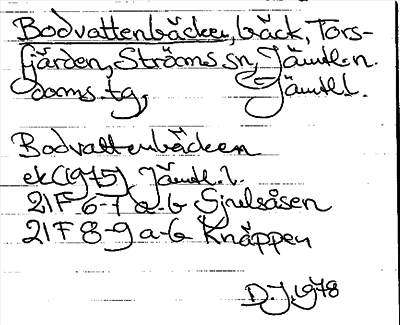 Bodvattenbäcken, bäck, Tors-
fjärden, Ströms sn, Jämtl. n.
doms. tg, Jämtl l.
Bodvattenbäcken
ek (1975) Jämtl. l.
21F 6-7 a-b Sjulsåsen
21F 8-9 a-b Knäppen
D.J. 1978